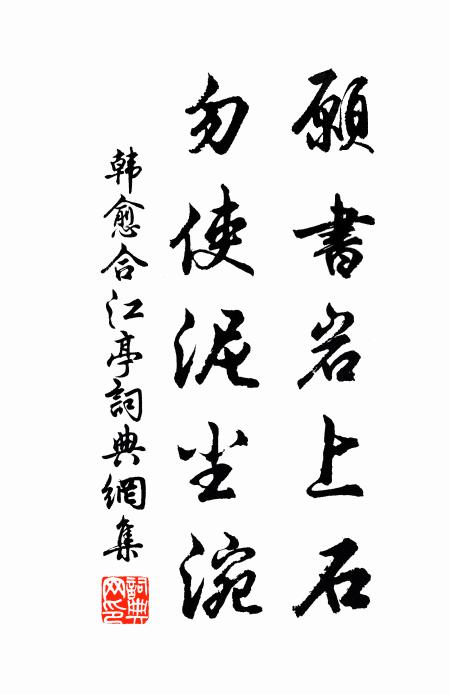 願書岩上石
勿使泥尘涴
韩愈合江亭詞典網集
詞典网印